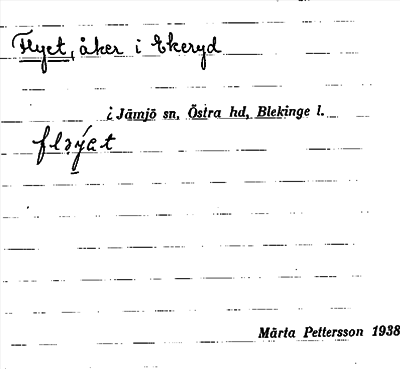 Flyet, åker i Ekeryd
i Jämjö sn, Östra hd, Blekinge l.
fləýət
Märta Pettersson 1938